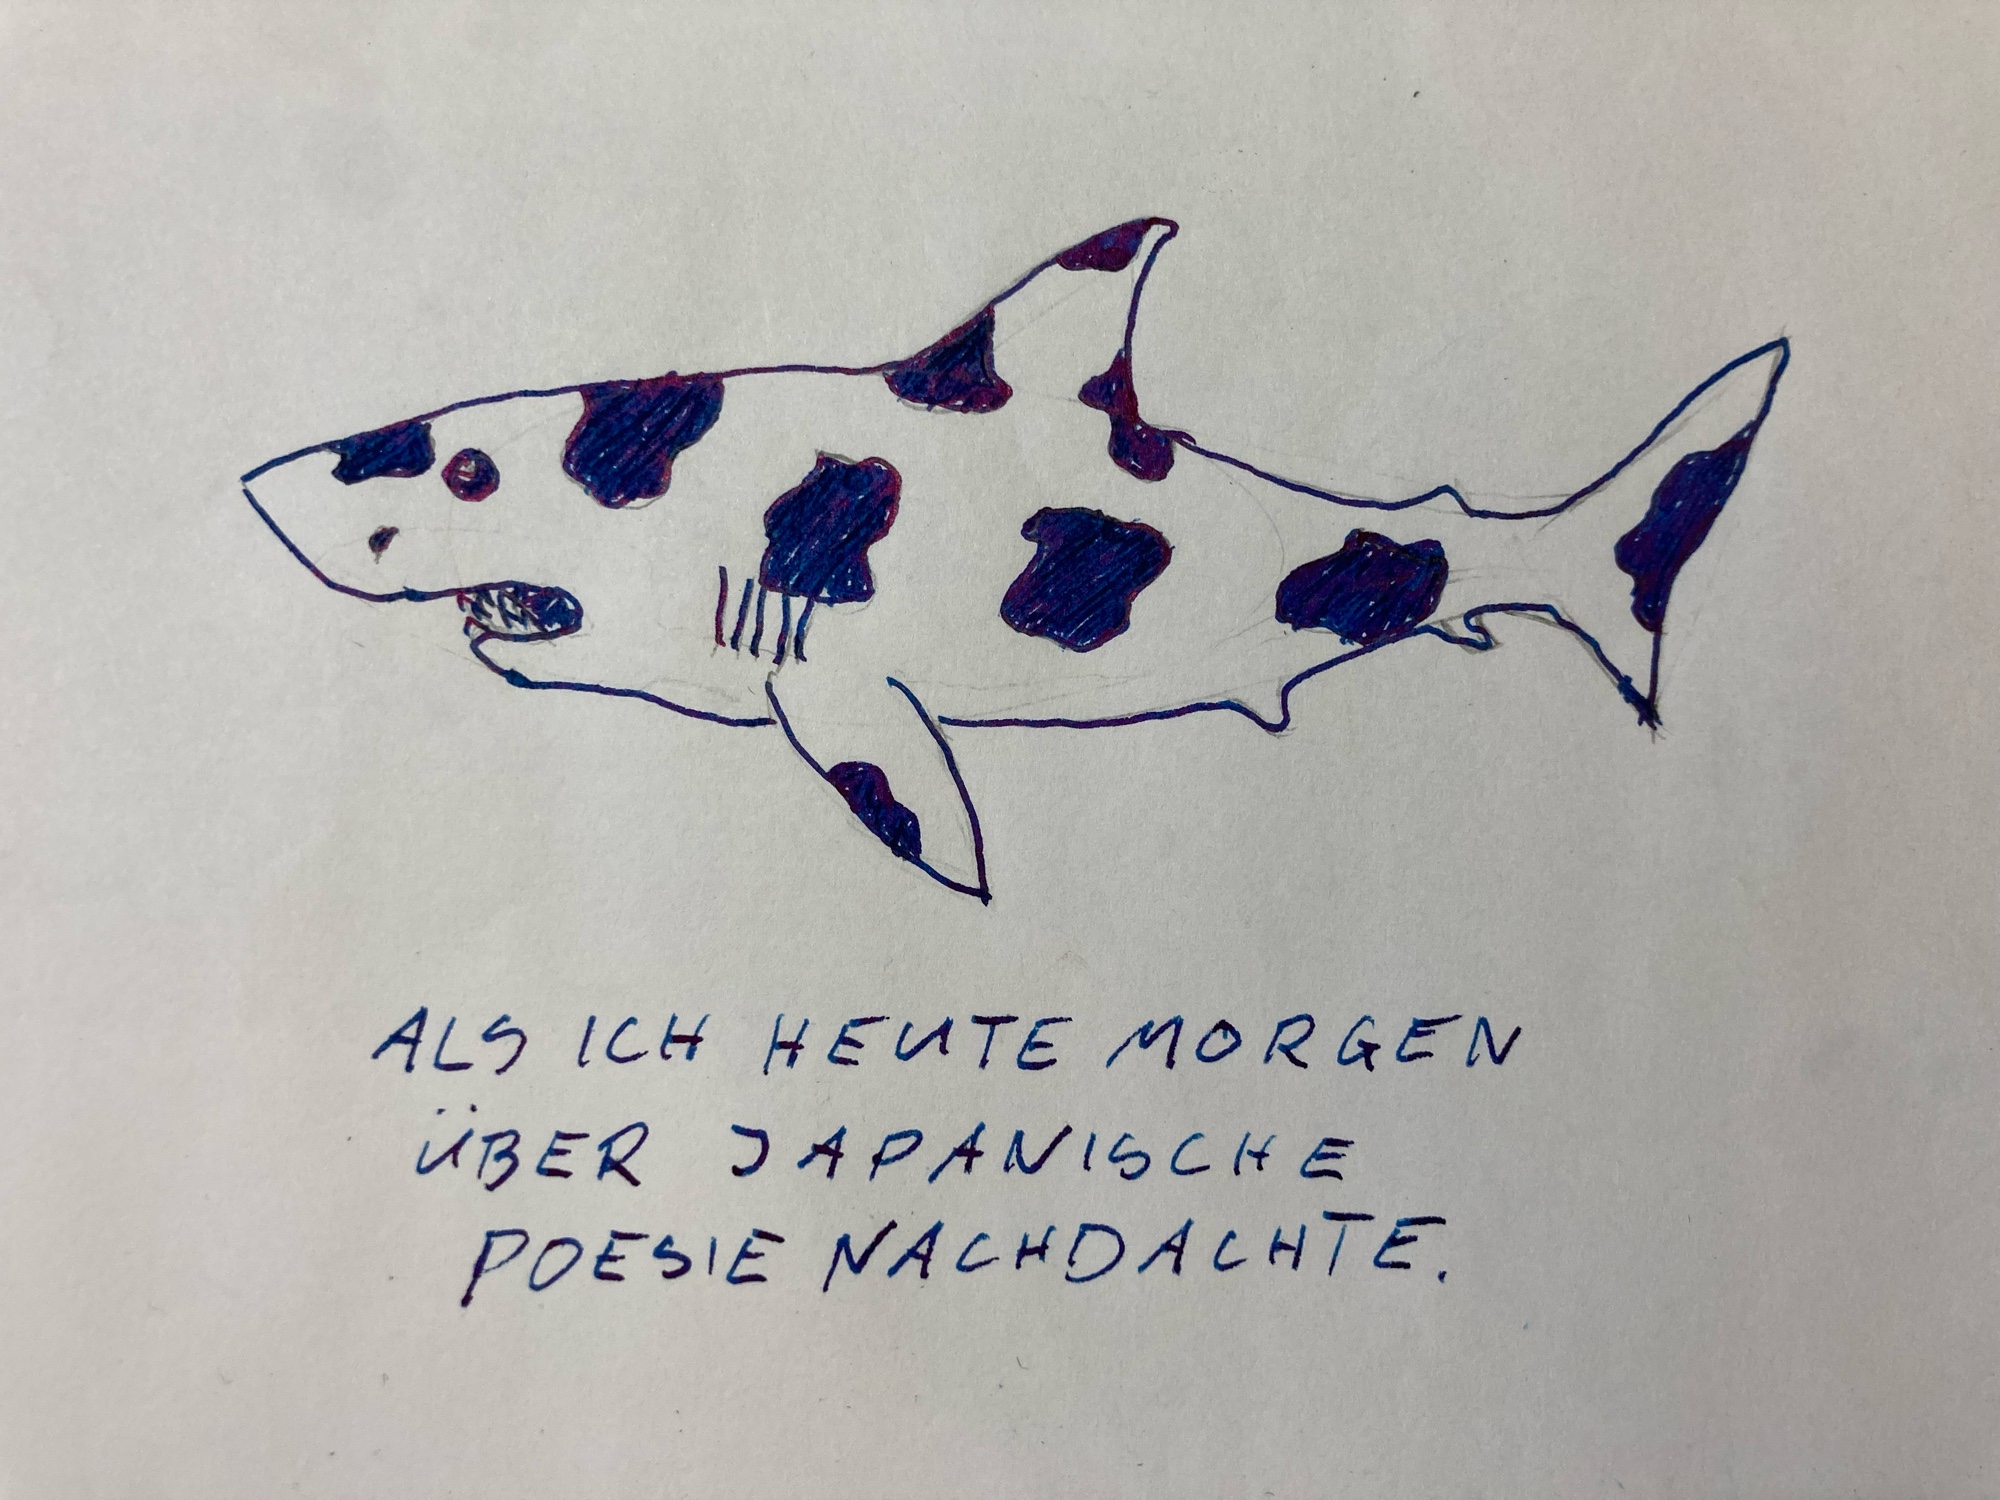 ALS ICH HEUTE MORGEN
ÜBER JAPANISCHE
POESIE NACHDACHTE.